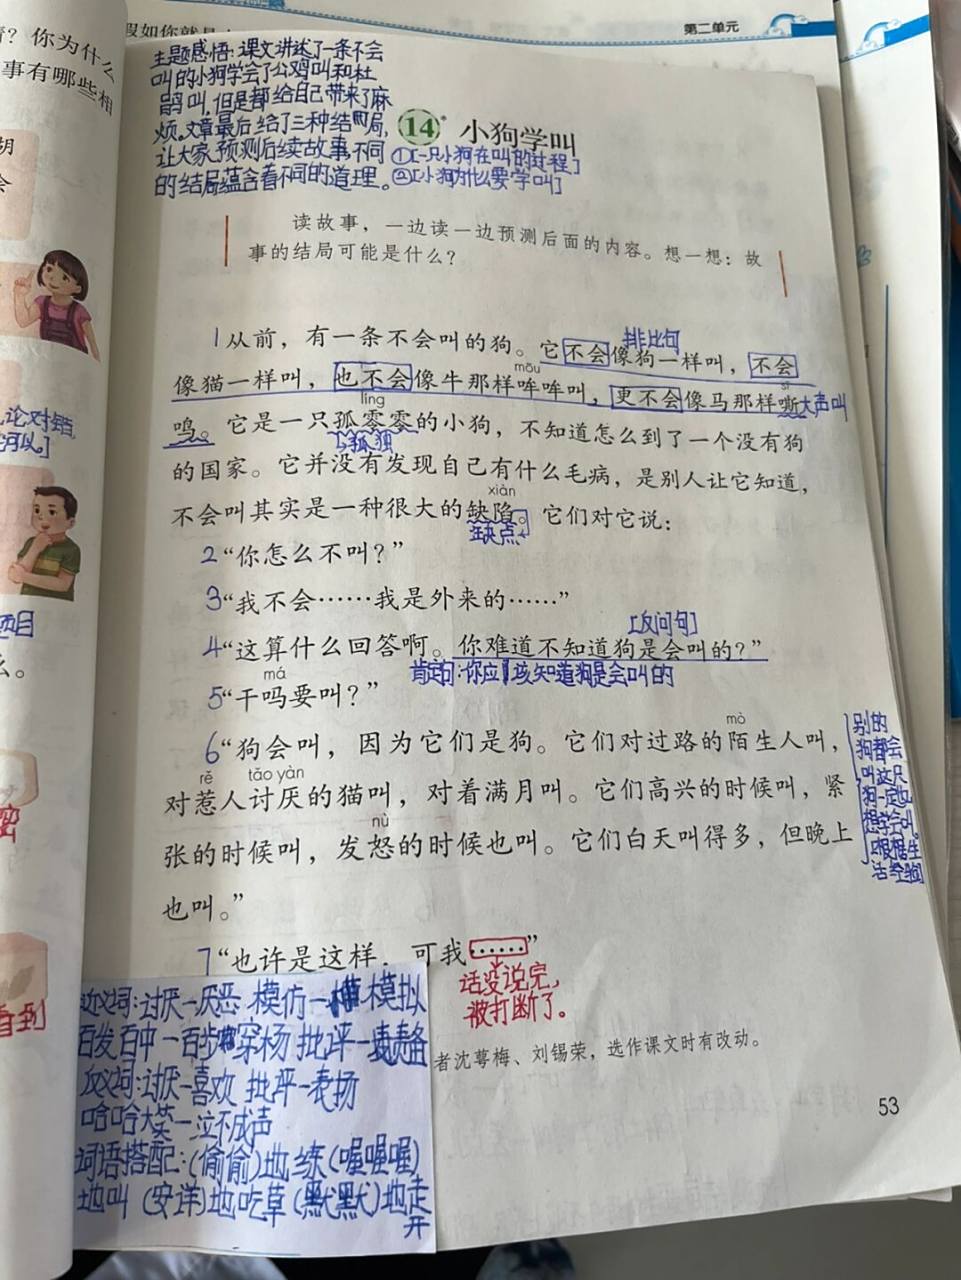 情？你为什么
事有哪些相
胡
会
论对错，
可以。]
题目
么。
密
看到
假如你就是
第二单元
主题感悟：课文讲述了一条不会
叫的小狗学会了公鸡叫和杜
鹃叫，但是都给自己带来了麻
烦。文章最后给了三种结局，
让大家预测后续故事，不同
的结局蕴含着不同的道理。
14* 小狗学叫
①[一只小狗在叫的过程]
②[小狗为什么要学叫]
读故事，一边读一边预测后面的内容。想一想：故
事的结局可能是什么？
排比句
1从前，有一条不会叫的狗。它不会像狗一样叫，不会
mōu
像猫一样叫，也不会像牛那样哞哞叫，更不会像马那样嘶
líng
sī
大声叫
鸣。它是一只孤零零的小狗，不知道怎么到了一个没有狗
孤独
的国家。它并没有发现自己有什么毛病，是别人让它知道，
xiàn
不会叫其实是一种很大的缺陷。它们对它说：
缺点
2“你怎么不叫？”
3“我不会……我是外来的……”
[反问句]
4“这算什么回答啊。你难道不知道狗是会叫的？”
肯定句：你应该知道狗是会叫的
má
5“干吗要叫？”
mò
6“狗会叫，因为它们是狗。它们对过路的陌生人叫，
rě tǎo yàn
对惹人讨厌的猫叫，对着满月叫。它们高兴的时候叫，紧
nù
张的时候叫，发怒的时候也叫。它们白天叫得多，但晚上
也叫。”
别的
狗都会
叫这只
狗一定也
想学会叫。
根据生
活经验
7“也许是这样，可我……”
话没说完，
被打断了。
近义词：讨厌—厌恶 模仿—模拟
百发百中—百步穿杨 批评—责备
反义词：讨厌—喜欢 批评—表扬
哈哈大笑—泣不成声
词语搭配：（偷偷）地练（喔喔喔）
地叫（安详）地吃草（默默）地走
开
者沈萼梅、刘锡荣，选作课文时有改动。
53